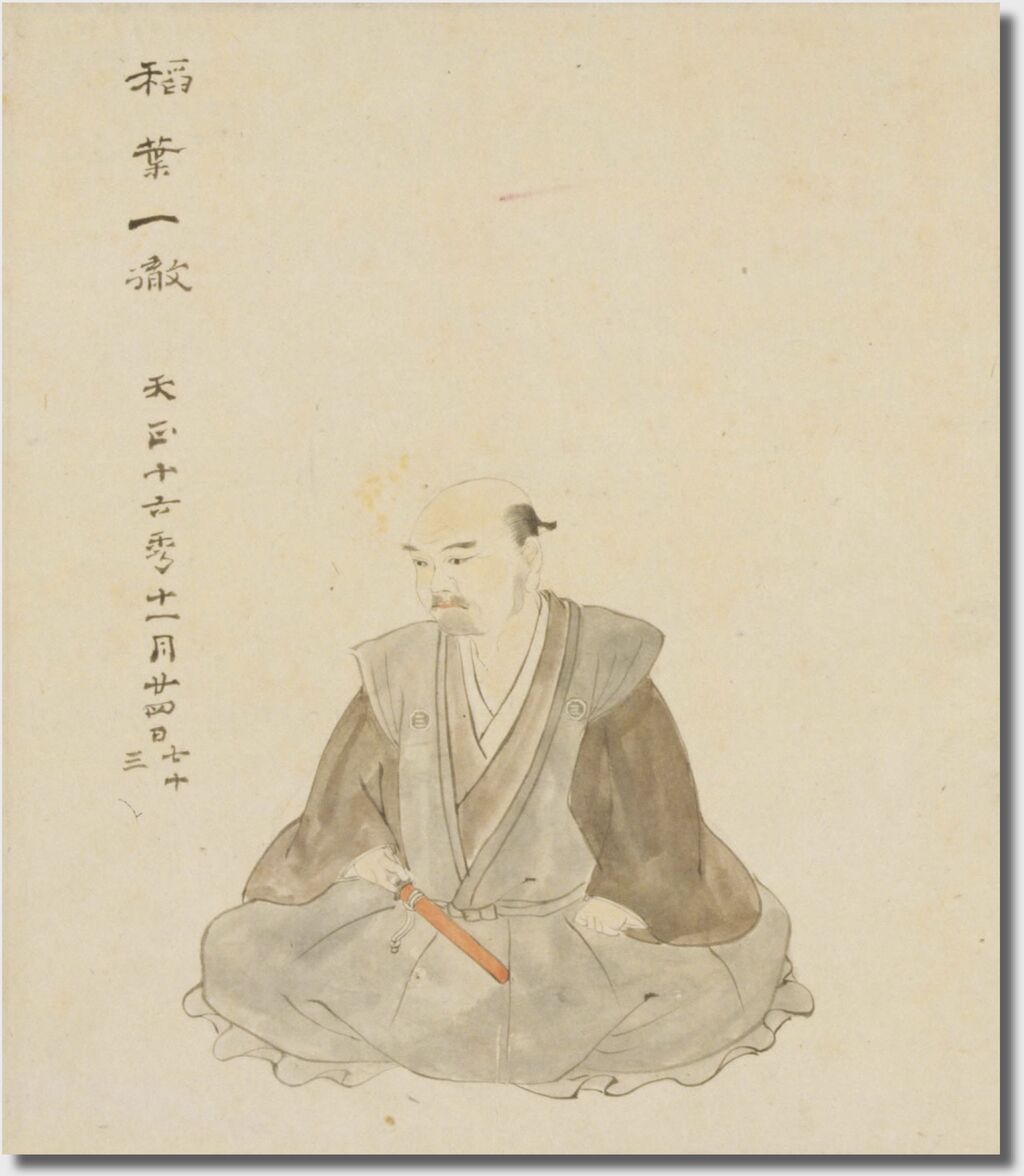 稻葉一徹 天正十六秊十一月廿四日
七十
三